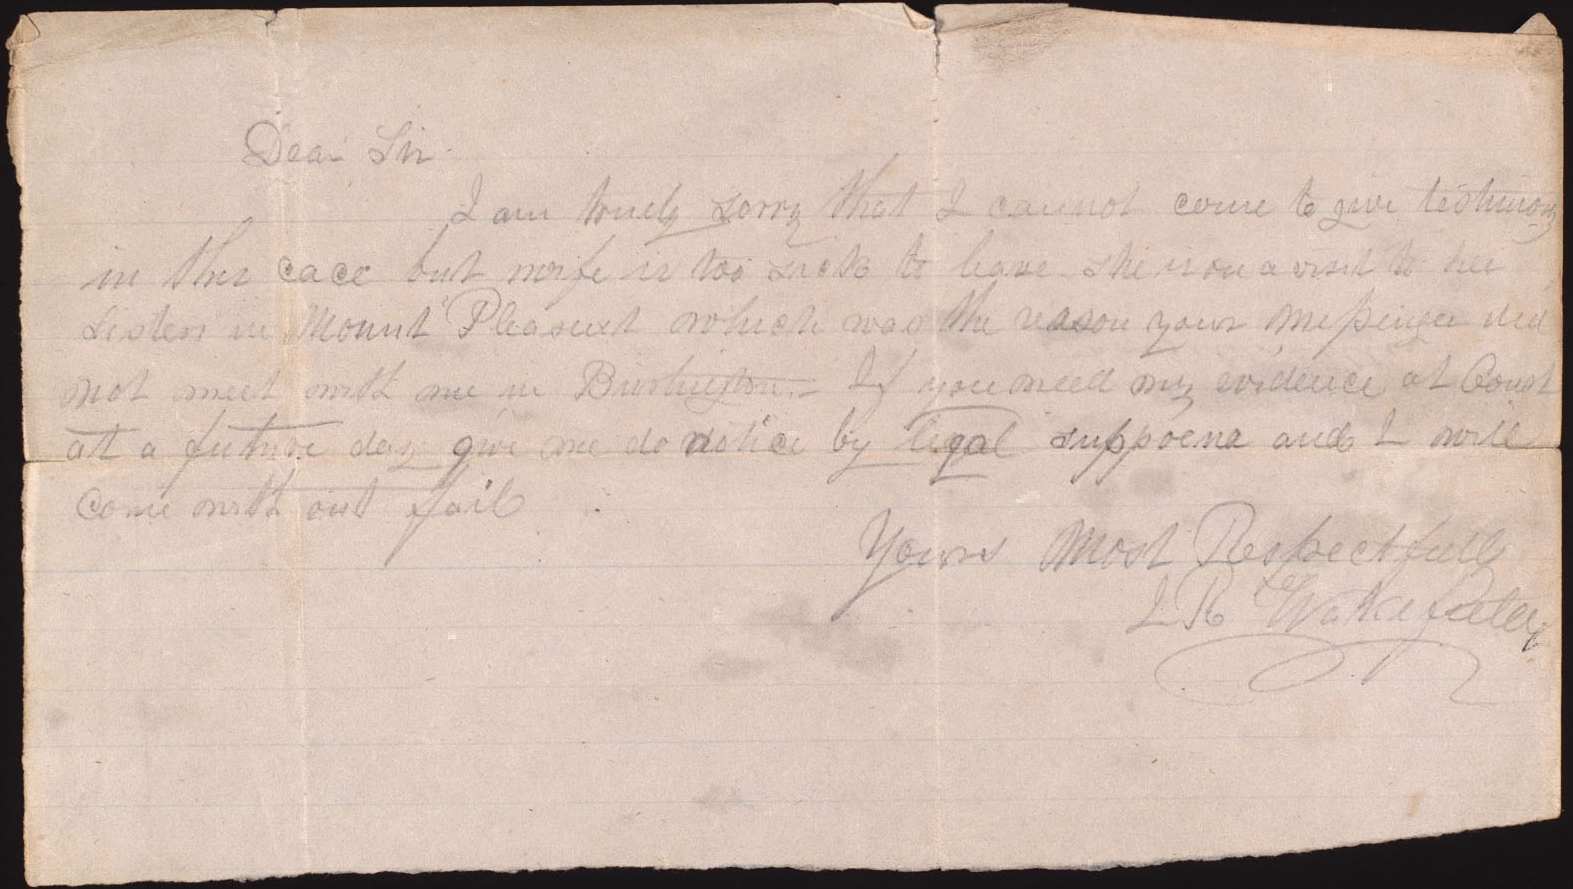 Dear Sir
I am truly sorry that I cannot come to give testimony
in this cace but wife is too sick to leave she is on a visit to her
sisters in Mount Pleasant which was the reason your messenger did
not meet with me in Burlington. If you need my evidence at Court
at a future day give me do notice by legal suppoena and I will
come with out fail
Yours Most Respectfully